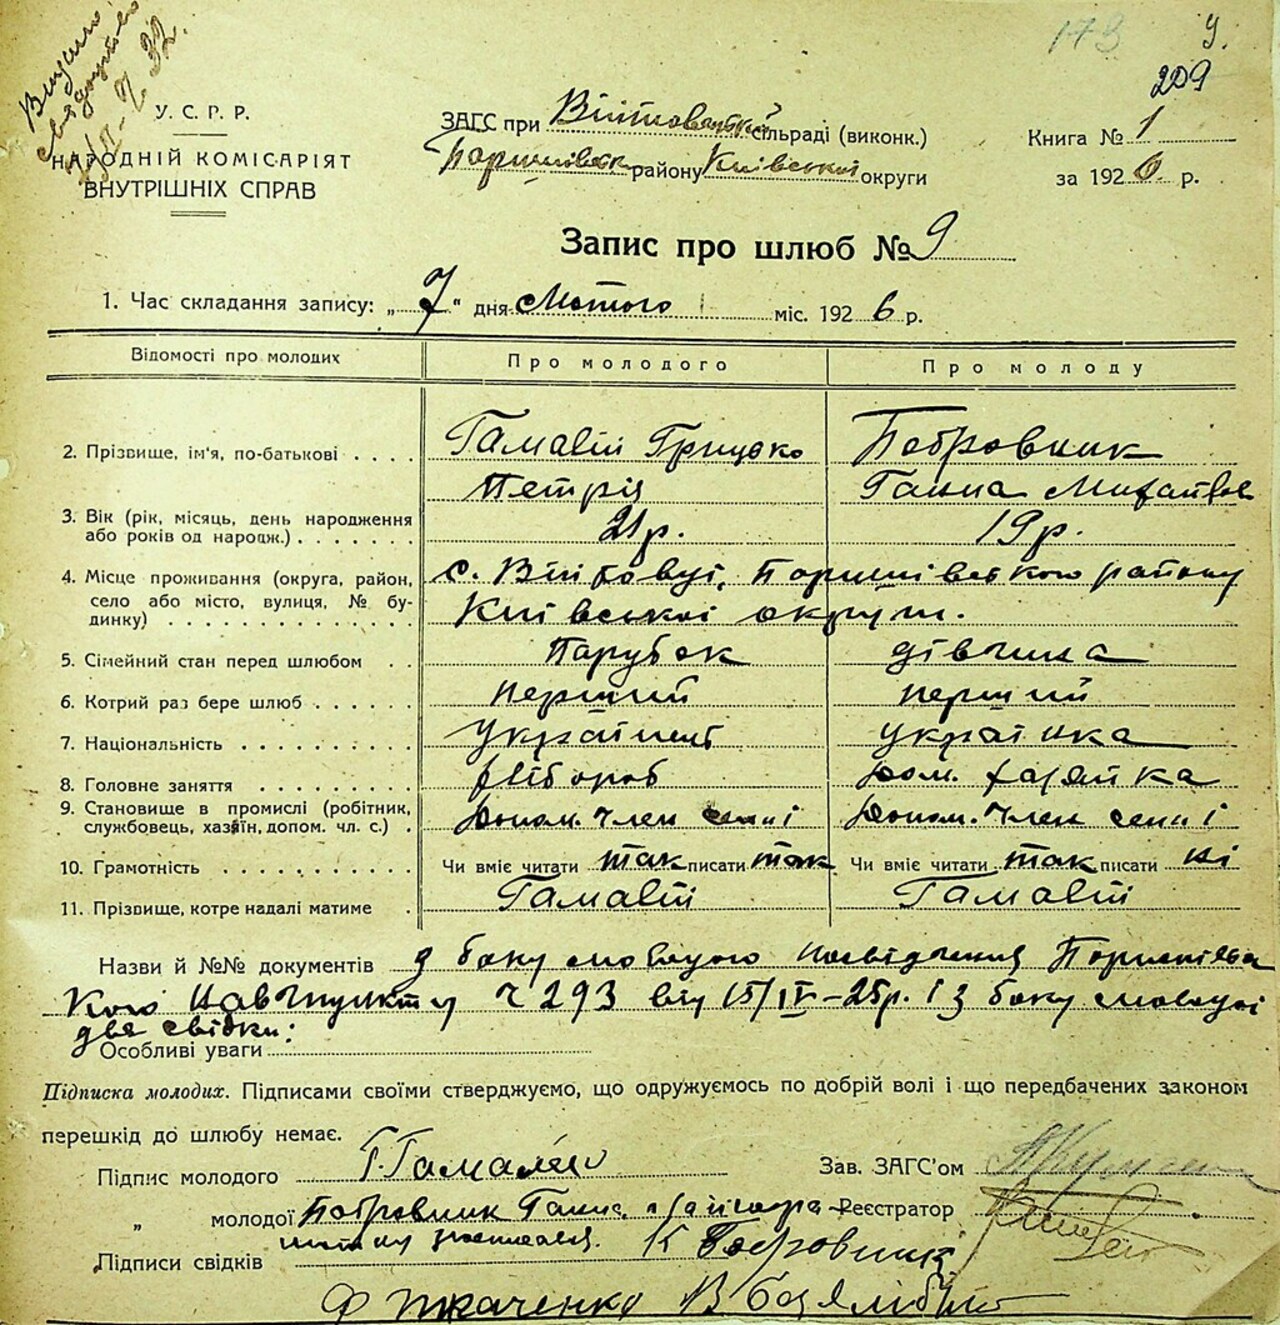 Видано
173 9.
209
У. С. Р. Р.
НАРОДНІЙ КОМІСАРІЯТ
ВНУТРІШНІХ СПРАВ
ЗАГС при Війтовецькій сільраді (виконк.)
району Київської округи
Книга № 1
за 1926 р.
Запис про шлюб № 9
1. Час складання запису: „7" дня Лютого міс. 1926 р.
Відомості про молодих Про молодого Про молоду
2. Прізвище, ім'я, по-батькові . . . . Гамалій Грицько Бобровник
Петрів Ганна Михайлов
3. Вік (рік, місяць, день народження
або років од народж.) . . . . . . . 21 р. 19 р.
4. Місце проживання (округа, район, с. Війтовці, району
село або місто, вулиця, № бу- Київської округи.
динку) . . . . . . . . . . . . . .
5. Сімейний стан перед шлюбом . . Парубок дівчина
6. Котрий раз бере шлюб . . . . . . перший перший
7. Національність . . . . . . . . . . Українец українка
8. Головне заняття . . . . . . . . . . хлібороб дом. хазяйка
9. Становище в промислі (робітник,
службовець, хазяїн, допом. чл. с.) . Допом. член семї Допом. член семї
10. Грамотність . . . . . . . . . . . Чи вміє читати так писати так Чи вміє читати так писати ні
11. Прізвище, котре надалі матиме . Гамалій Гамалій
Назви й №№ документів з боку молодого посвідчення
кого ч 293 від 15/IV-25р. і з боку молодої
два свідки:
Особливі уваги
Підписка молодих. Підписами своїми стверджуємо, що одружуємось по добрій волі і що передбачених законом
перешкід до шлюбу немає.
Підпис молодого Г. Гамалій Зав. ЗАГС'ом
„ молодої Бобровник Ганна Реєстратор
Підписи свідків К Бобровник
Ф Ткаченко В